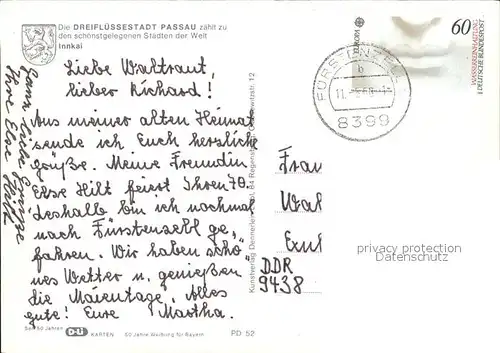 Die DREIFLÜSSESTADT PASSAU zählt zu
den schönstgelegenen Städten der Welt
Innkai
Liebe Waltraut,
lieber Richard!
Aus meiner alten Heimat
sende ich Euch herzliche
Grüße. Meine Freundin
Else Hilt feiert Ihren 70.
deshalb bin ich nochmal
nach Fürstenzell ge,
fahren. Wir haben schö
nes Wetter u. genießen
die Maientage. Alles
gute! Eure Martha.
Ganz liebe Grüsse
Ihre Else Hilt
Seit 50 Jahren D-LI KARTEN 50 Jahre Werbung für Bayern PD 52
84 Regensburg 12
EUROPA
60
WASSERREINHALTUNG
DEUTSCHE BUNDESPOST
b
8399
Frau
Wal
DDR
9438
privacy protection
Datenschutz